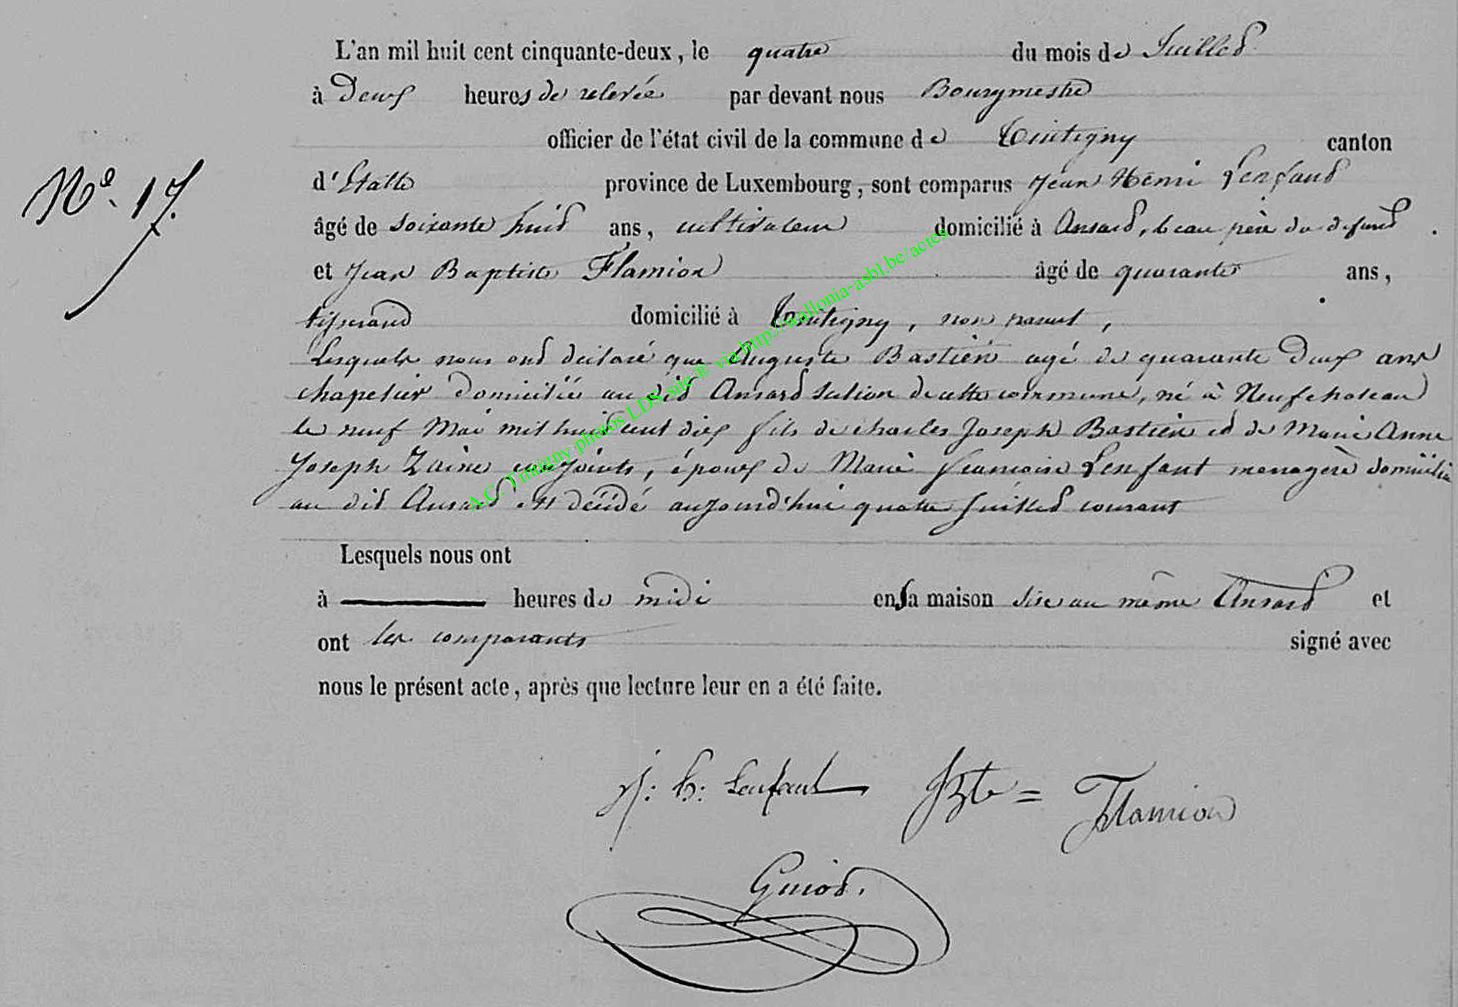 L'an mil huit cent cinquante-deux, le quatre du mois de Juillet
à Deux heures de relevée par devant nous Bourgmestre
officier de l'état civil de la commune de Tintigny canton
N° 17. d'Etalle province de Luxembourg, sont comparus Jean Henri Lenfant
âgé de soixante huit ans, cultivateur domicilié à Ansard, beau père du defunt .
et Jean Baptiste Flamion âgé de quarante ans,
tisserand domicilié à Tintigny, non parent,
Lesquels nous ont déclaré que Auguste Bastien agé de quarante Deux ans
chapelier Domicilié au dit Ansard section de cette commune, né à Neufchateau
le neuf Mai mil huit cent dix fils de charles Joseph Bastien et de Marie Anne
Joseph Zaine conjoints, époux de Marie francoise Lenfant menagère domiciliée
au dit Ansard est décidé aujourd'hui quatre Juillet courant
Lesquels nous ont
à heures de midi en sa maison sise au même Ansard et
ont les comparants signé avec
nous le présent acte, après que lecture leur en a été faite.
j: h: Lenfant JBte = Flamion
Guiot.
A.C. Tintigny photos LDS site R via http://wallonia-asbl.be/actes